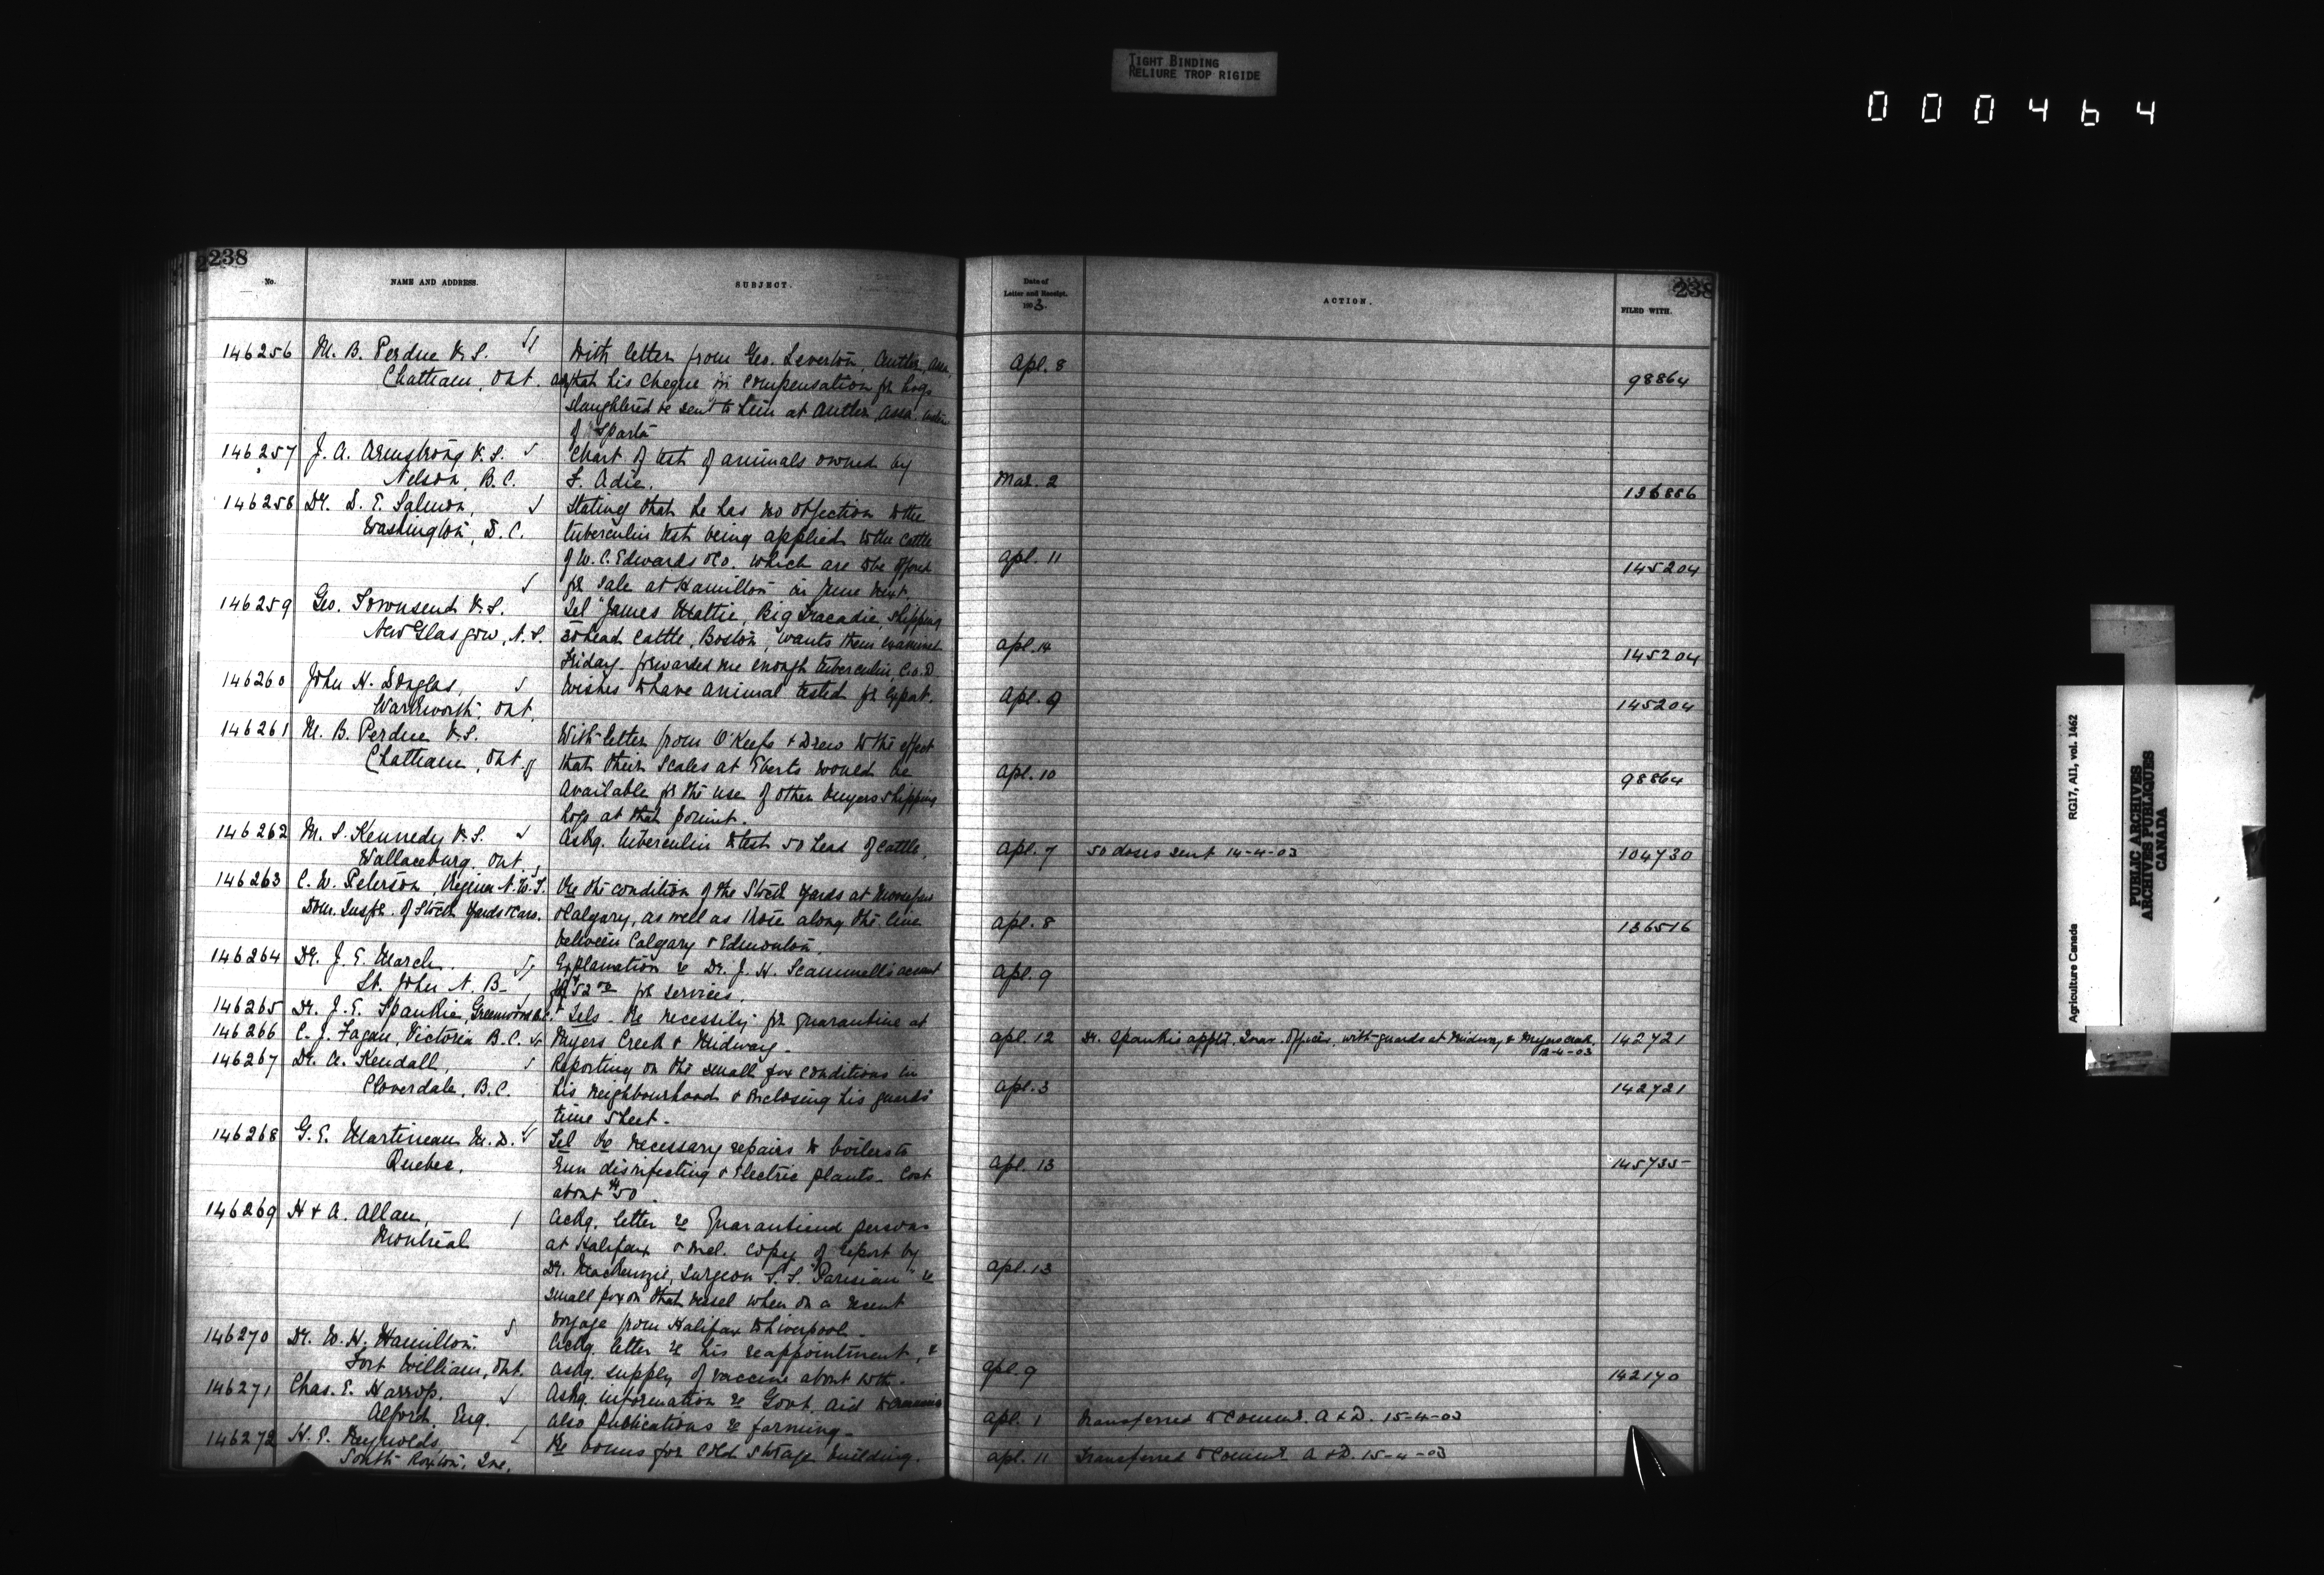 TIGHT BINDING
RELIURE TROP RIGIDE
000464
238
No.
NAME AND ADDRESS.
SUBJECT.
Date of
Letter and Receipt.
1903.
ACTION.
FILED WITH.
238
146256 M. B. Perdue V.S. With letter from Geo. Leverton, Antler, Assa.
Chatham, Ont. askg that his cheque in compensation for hogs
slaughtered be sent to him at Antler Assa. instead
of Sparta
Apl. 8 98864
146257 J. A. Armstrong V.S. Chart of test of animals owned by
Nelson, B.C. F. Adie.
Mar. 2 136886
146258 Dr. D. E. Salmon, Stating that he has no objection to the
Washington, D.C. tuberculin test being applied to the cattle
of W. C. Edwards & Co. which are to be offered
for sale at Hamilton in June next.
Apl. 11 145204
146259 Geo. Townsend V.S. Tel "James Mattie, Big Tracadie, shipping
New Glasgow, N.S. head cattle, Boston, wants them examined
Friday forwarded me enough tuberculin, C.O.D
Apl. 14 145204
146260 John H. Douglas, Wishes to have animal tested for export.
Warkworth, Ont.
Apl. 9 145204
146261 M. B. Perdue V.S. With letter from O'Keefe & Drew to the effect
Chatham, Ont. that their scales at Eberts would be
available for the use of other buyers shipping
hogs at that point.
Apl. 10 98864
146262 M. S. Kennedy V.S. Askg. tuberculin to test 50 head of cattle.
Wallaceburg, Ont
Apl. 7 50 doses sent 14-4-03 104730
146263 C. W. Peterson, Regina N.W.T. Re the condition of the Stock Yards at
Dom. Inspr. of Stock Yards & Cars. & Calgary, as well as those along the line
between Calgary & Edmonton
Apl. 8 136516
146264 Dr. J. E. March. Explanation re Dr. J. H. Scammell's account
St. John N.B. of $52 00 for services.
Apl. 9
146265 Dr. J. E. Spankie, Greenwood B.C. Tels. Re necessity for quarantine at
146266 C. J. Fagan, Victoria B.C. Myers Creek & Midway.
Apl. 12 Dr. Spankie apptd. Quar. Officer, with guards at Midway & Myers Creek. 142721
12-4-03
146267 Dr. A. Kendall, Reporting on the small pox conditions in
Cloverdale, B.C. his neighbourhood & enclosing his guards'
time sheet.
Apl. 3 142721
146268 G. E. Martineau M.D. Tel Re necessary repairs to boilers to
Quebec. run disinfecting & electric plants. Cost
about $50.
Apl. 13 145735
146269 H & A. Allan, Ackg. letter re quarantined persons
Montreal at Halifax & encl. copy of report by
Dr. MacKenzie, Surgeon S.S. "Parisian" re
small pox on that vessel when on a recent
voyage from Halifax to Liverpool.
Apl. 13
146270 Dr. W. H. Hamilton. Ackg. letter re his reappointment, &
Fort William, Ont. askg. supply of vaccine about
Apl. 9 142170
146271 Chas. E. Harrop. Askg. information re Govt. aid to
Alford, Eng. also publications re farming.
Apl. 1 Transferred to Commr. A & D. 15-4-03
146272 H. E. Reynolds Re bonus for cold storage building.
South Roxton, Que.
Apl. 11 Transferred to Commr. A & D. 15-4-03
Agriculture Canada RG17, AI1, vol. 1462
PUBLIC ARCHIVES
ARCHIVES PUBLIQUES
CANADA